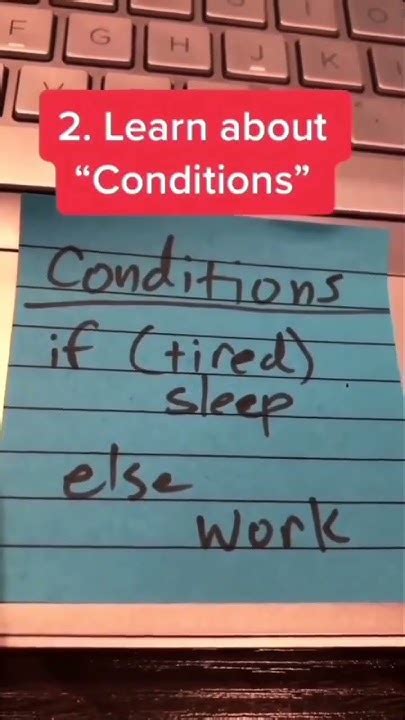 I O
F G H J K
2. Learn about
“Conditions”
Conditions
if (tired)
sleep
else
work